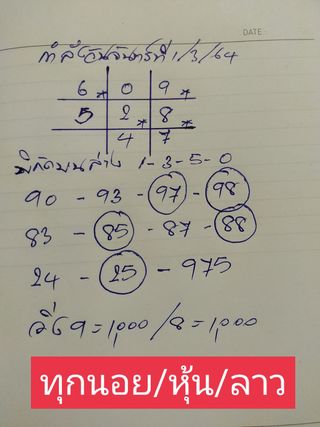 DATE :
กำลังวันจันทร์ที่ 1/3/64
6* 0 9*
5 2* 8*
4 7
พิกัดบนล่าง 1-3-5-0
90 - 93 - 97 - 98
83 - 85 - 87 - 88
24 - 25 - 975
วิ่ง 9 = 1,000 / 8 = 1,000
ทุกนอย/หุ้น/ลาว